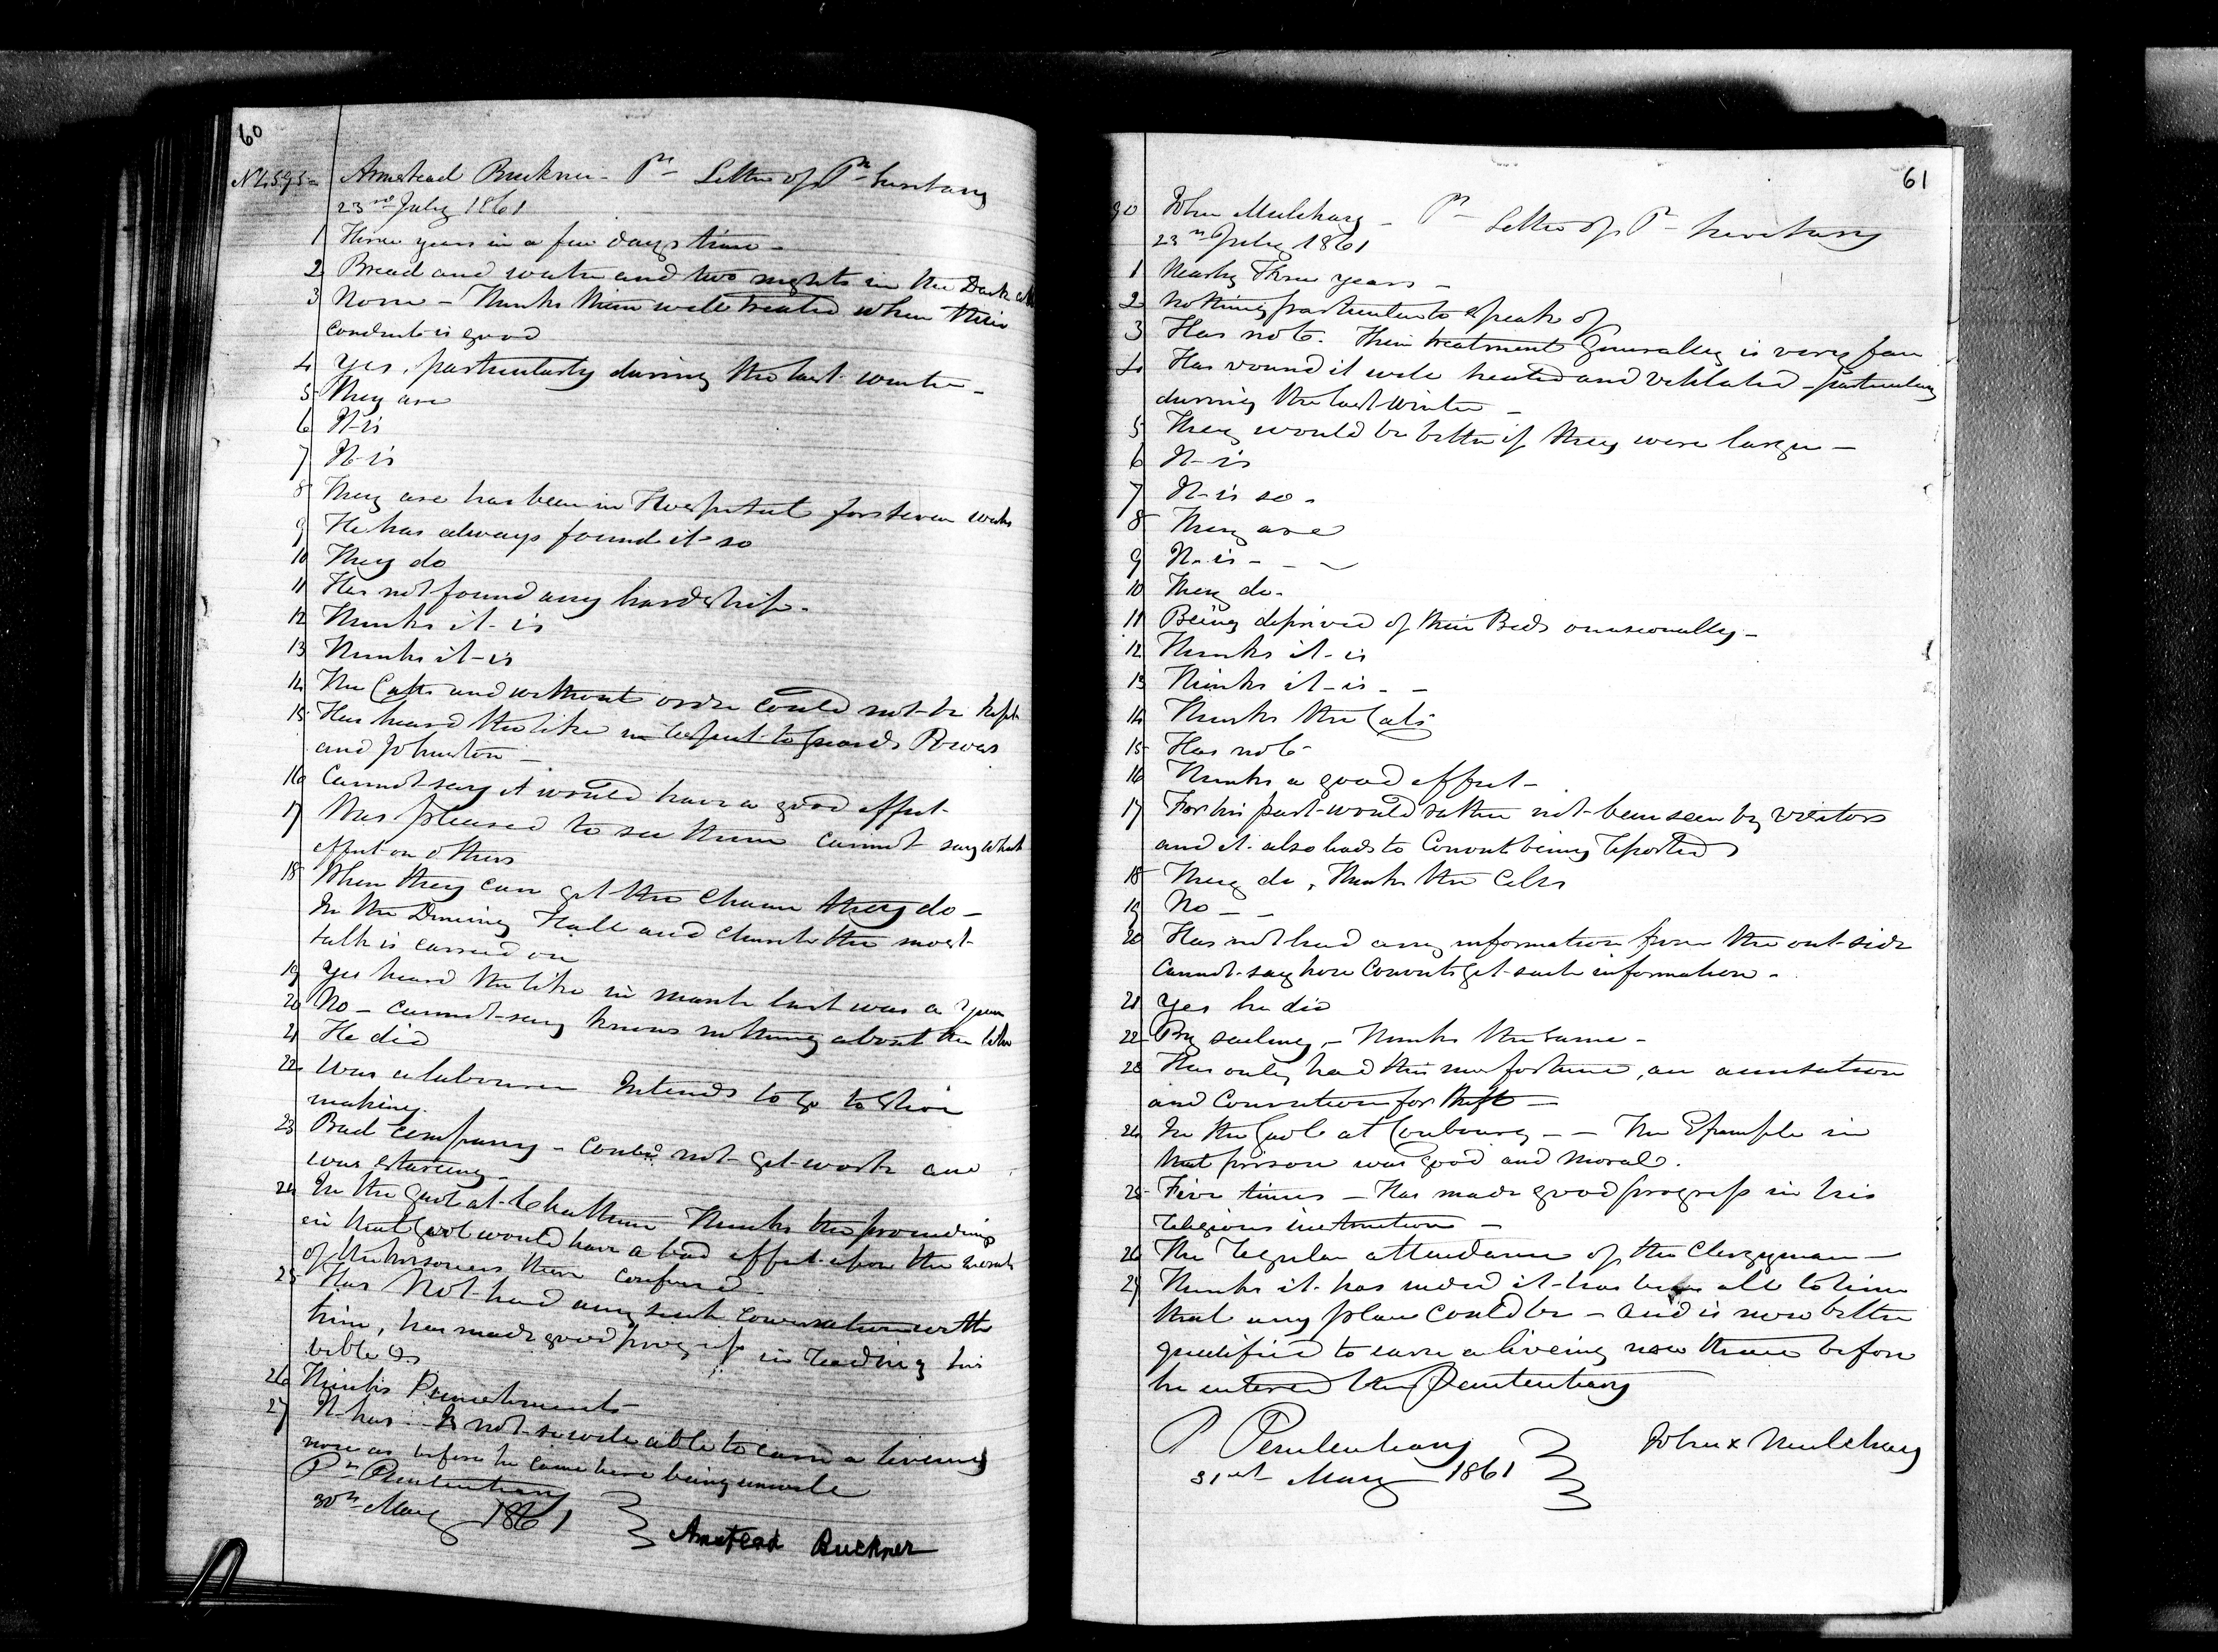 60
Armstead Buckner - Pr Letter of Pr Secretary
23rd July 1861
1 Three years in a few days time -
2 Bread and water and two nights in the Dark cell
3 None - Thinks them well treated when their
conduct is good
4 Yes, particularly during the last winter -
5 They are
6 It is
7 It is
8 They are has been in Hospital for seven weeks
9 He has always found it so
10 They do
11 Has not found any hardship -
12 Thinks it is
13 Thinks it is
14 The Catts and without order could not be kept
15 Has heard the like in respect to Guards Powers
and Johnston -
16 Cannot say it would have a good effect
17 Was pleased to see them cannot say what
effect on others
18 When they can get the chance they do -
In the Dinning Hall and church the most
talk is carried on
19 Yes heard the like in march last was a
20 No - cannot say knows nothing about the
21 He did
22 Was a labourer Intends to go to Shoe
making.
23 Bad company - could not get work and
was starving -
24 In the Gaol at Chatham Thinks the proceedings
in that Gaol would have a bad effect upon the morals
of the prisoners there confined -
25 Has Not had any such conversation with
him, has made good progress in reading his
bible &c
26 Thinks Punishments -
27 It has - Is not so well able to earn a liveing
now as before he came here being unwell
Pr Penitentiary
30th May 1861 Amstead Buckner
61
John Mulchary - Pr Letter of Pr Secretary
23rd July 1861
1 Nearly Three years -
2 Nothing particular to speak of
3 Has not. Their treatment Generally is very fair
4 Has round it well heated and vetilated - particulary
during the last winter -
5 They would be better if they were larger -
6 It is
7 It is so -
8 They are
9 It is - - -
10 They do -
11 Being deprived of their Beds occasionally -
12 Thinks it is
13 Thinks it is - -
14 Thinks the Cats
15 Has not
16 Thinks a good effect -
17 For his part would rather not been seen by visitors
and it also leads to Convict being reported
18 They do, Thinks the Cells
19 No - -
20 Has not had any information from the out side
cannot say how Convicts get such information -
21 Yes he did
22 By sailing, - Thinks the same -
23 Has only had this misfortune, an accusation
and Conviction for theft -
24 In the Gaol at Coubourg - - The Example in
that prison was good and moral.
25 Five times - Has made good progress in his
religious instruction -
26 The regular attendance of the Clergyman -
27 Thinks it has indeed it has been all to him
that any place could be - and is now better
quilified to earn a liveing now than before
he entered the Penitentiary
P Penitentiary John x Mulchary
31st May 1861